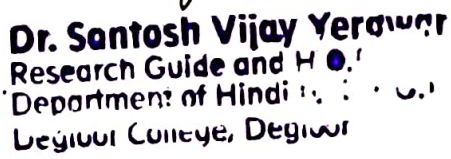 Dr. Santosh Vijay Yerawar
Research Guide and H
Department of Hindi
Degloor College, Degloor